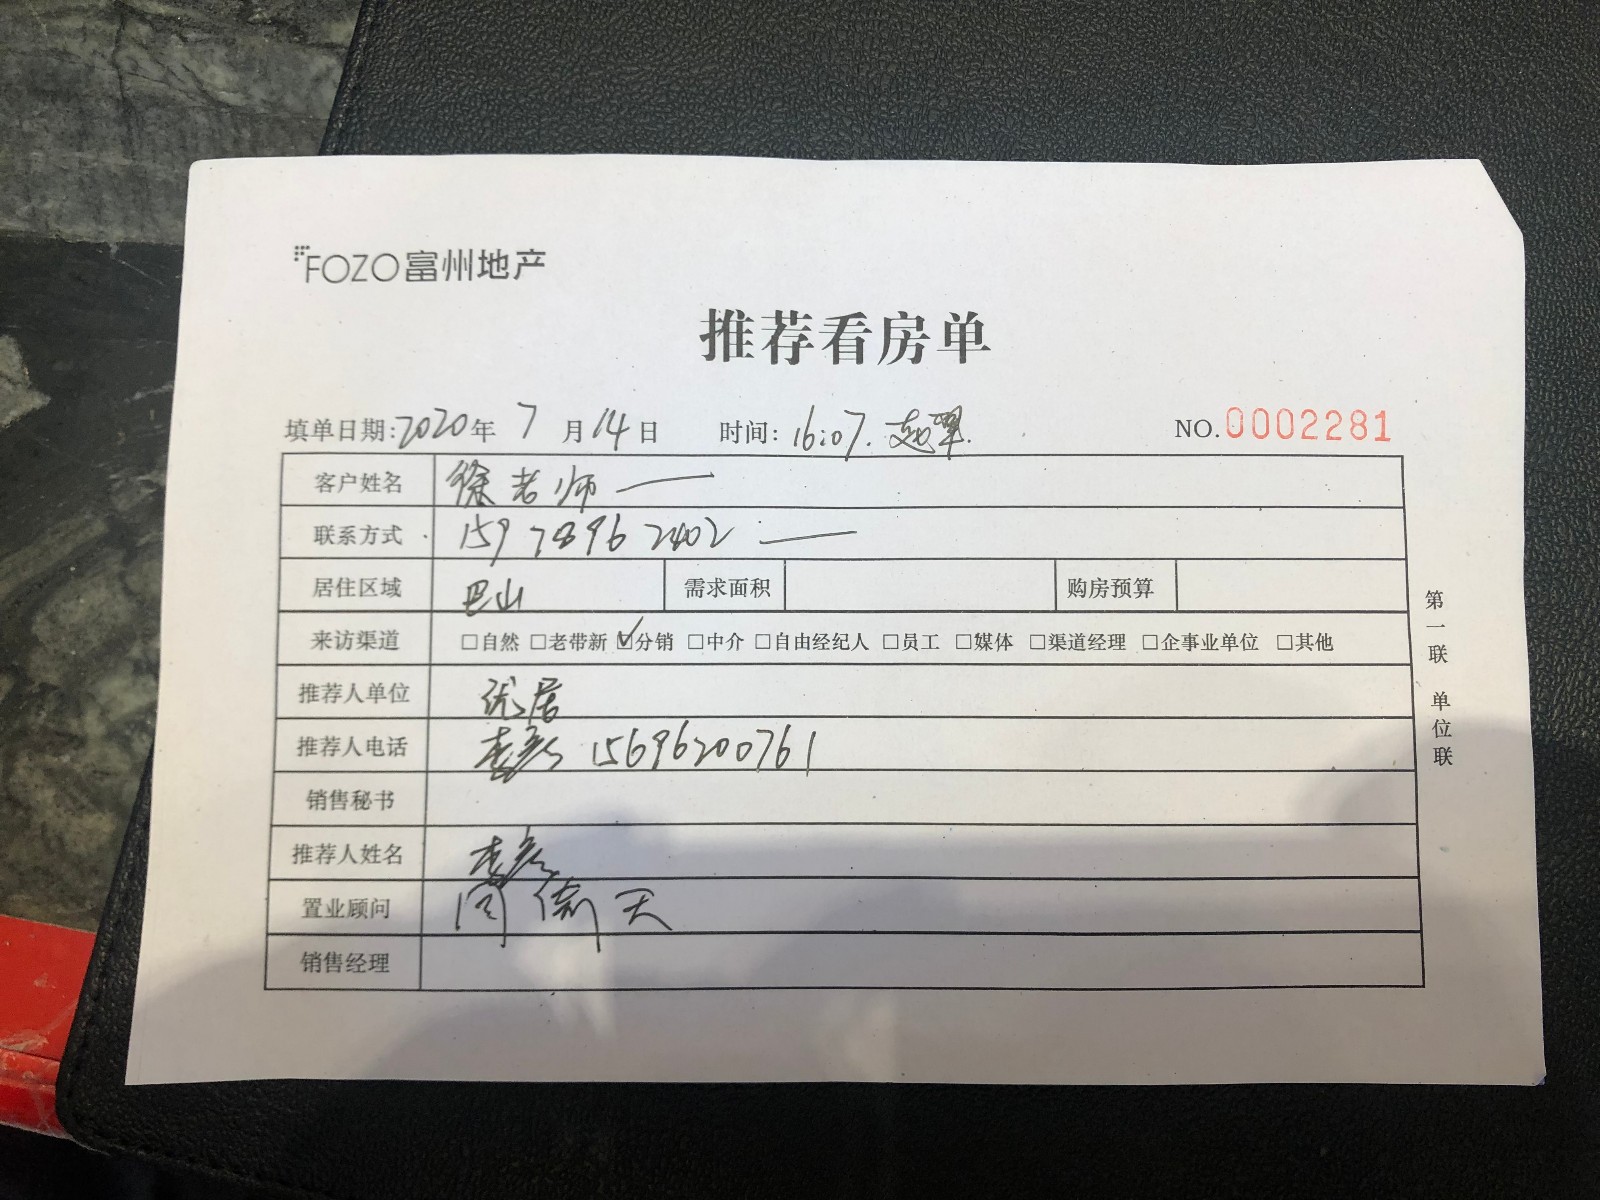 FOZO富州地产
推荐看房单
填单日期:2020年 7 月 14 日 时间: 16:07. NO.0002281
客户姓名 徐老师
联系方式 159 7896 2402
居住区域 巴山 需求面积 购房预算
来访渠道 □自然 □老带新 ☑分销 □中介 □自由经纪人 □员工 □媒体 □渠道经理 □企事业单位 □其他
推荐人单位 优居
推荐人电话 李彦 15696200761
销售秘书
推荐人姓名 李彦
置业顾问 周 天
销售经理
第一联 单位联